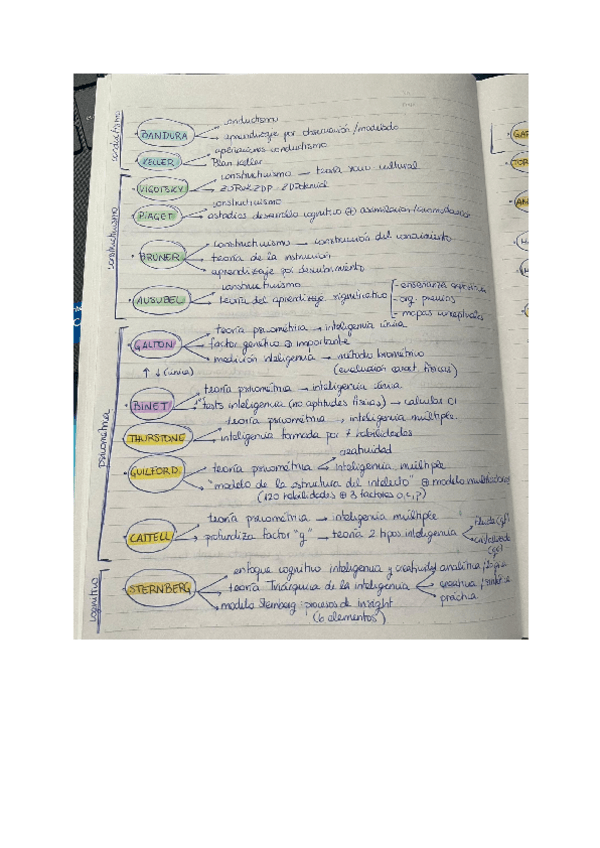 conductismo
conductismo
BANDURA
aprendizaje por observación/modelado
aportaciones conductismo
KELLER
Plan Keller
constructivismo → teoría socio cultural
VIGOTSKY
constructivismo
constructivismo
PIAGET
estadios desarrollo cognitivo ⊕ asimilación/acomodación
constructivismo → construcción del conocimiento
BRUNER
teoría de la instrucción
aprendizaje por descubrimiento
constructivismo
AUSUBEL
teoría del aprendizaje significativo
- enseñanza
- org. previos
- mapas conceptuales
psicometría
teoría psicométrica → inteligencia única
GALTON
factor genético ⊕ importante
medición inteligencia → método biométrico
(evaluación caract. físicas)
↑ ↓ (única)
teoría psicométrica → inteligencia única
BINET
"tests inteligencia (no aptitudes físicas) → calcular CI
teoría psicométrica → inteligencia múltiple.
THURSTONE
inteligencia formada por 7 habilidades
creatividad
GUILFORD
teoría psicométrica → inteligencia múltiple
"modelo de la estructura del intelecto" ⊕ modelo multifactorial
(120 habilidades ⊕ 3 factores o,c,p)
teoría psicométrica → inteligencia múltiple
CATTELL
profundiza factor "g" → teoría 2 tipos inteligencia
fluida (gf)
cristalizada
(gc)
cognitivo
enfoque cognitivo inteligencia y creatividad
STERNBERG
teoría Triárquica de la inteligencia
analítica/lógica
creativa
práctica
modelo Sternberg: procesos de insight
(6 elementos)
GAR